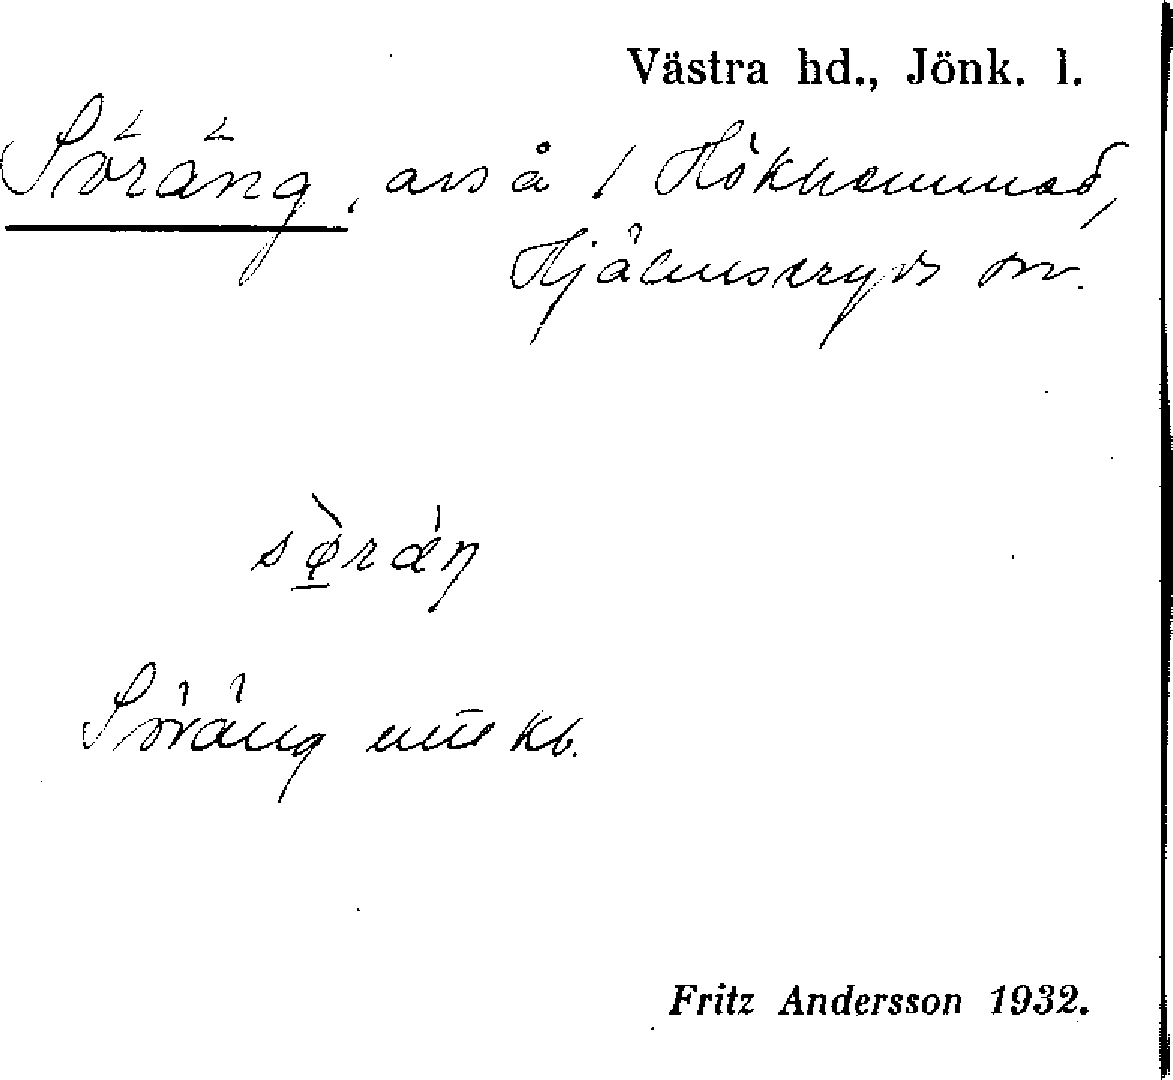 Västra hd., Jönk. l.
Söräng, avs å / Hökhammar,
Hjälmseryds sn.
sø̀ræ̀ŋ
Söräng kb.
Fritz Andersson 1932.